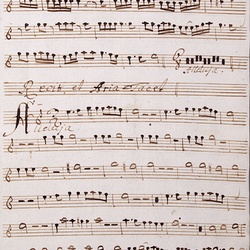 Alleluja.
Recit et Aria Tacet
Alleluja